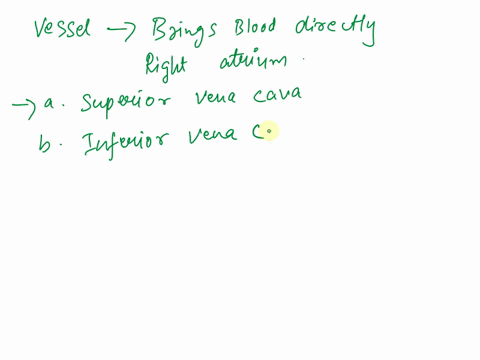 Vessel → Brings Blood directly
Right atrium.
→ a. Superior vena cava
b. Inferior vena c